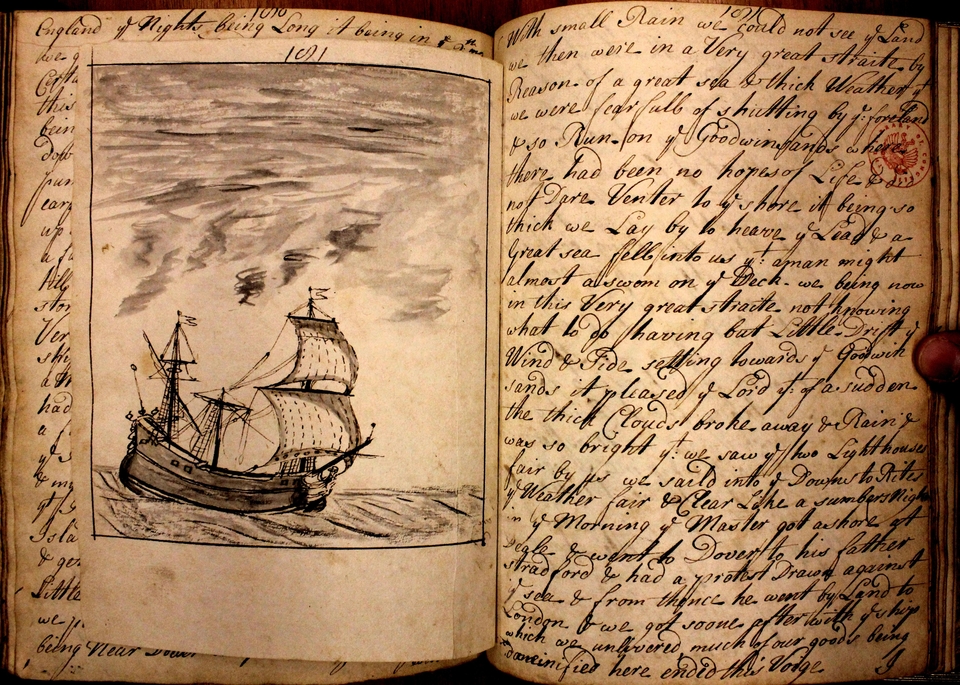 England & Nights being Long it being in
we
this
bein
dow
pun
up
a fa
stor
Ver
shi
a
had
a
& my
Isla
& got
Little
we
being Near Dover
181
With small Rain we Could not see ye Land
we then were in a Very great straite by
Reason of a great sea & thick Weather yt
we were fearfull of shutting by ye: foreland
& so Run on ye Goodwin sands where
there had been no hopes of Life & a
not Dare Venter to ye shore it being so
thick we Lay by to heave ye Lead & a
Great sea fell into us yt: a man might
almost a swom on ye Deck we being now
in this Very great straite not knowing
what to do having but Little Drift ye
Wind & Tide setting towards ye Godwin
sands it pleased ye Lord yt: of a sudden
the thick Clouds broke away & Rain &
was so bright yt we saw ye two Lighthouses
fair by us we saild into ye Downs to Rites
ye Weather fair & Clear Like a sumbers Night
in ye Morning ye Master got ashore at
Deale & went to Dover to his father
stradford & had a protest Drawn against
ye sea & from thence he went by Land to
London & we got soone after with ye ship
which we unlivered much of our goods being
damnified here ended this Voige